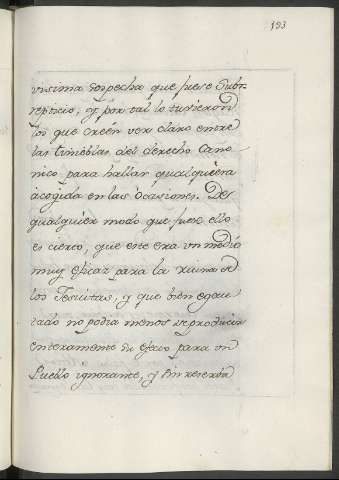 193
visima sospecha que fuese Subr-
repticio, y por tal lo tuvieron
los que creén ver claro entre
las tinieblas del derecho Cano
nico para hallar qualquiera
acogida en las Ocasiones. Des
qualquier modo que fuese ello
es cierto, que este era un medio
muy eficaz para la ruina de
los Jesuitas, y que bien
no podia menos de producir
enteramente su efecto para un
Pueblo ignorante, y sin reserva